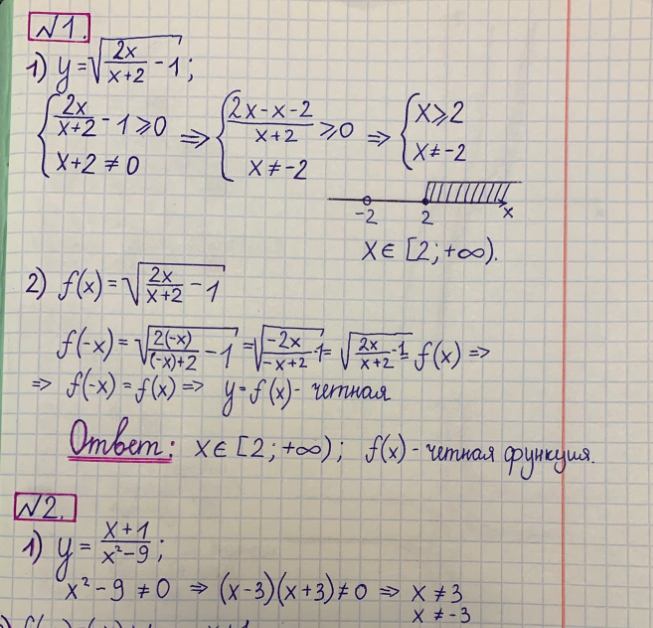 №1.
1) y = √(2x/(x+2) - 1);
{ 2x/(x+2) - 1 ⩾ 0 ⇒ { (2x-x-2)/(x+2) ⩾ 0 ⇒ { x ⩾ 2
x+2 ≠ 0 x ≠ -2 x ≠ -2
-2 2 x
x ∈ [2; +∞).
2) f(x) = √(2x/(x+2) - 1)
f(-x) = √(2(-x)/((-x)+2) - 1) = √(-2x/(-x+2) - 1) = √(2x/(x+2) - 1) = f(x) ⇒
⇒ f(-x) = f(x) ⇒ y = f(x) - четная
Ответ: x ∈ [2; +∞); f(x) - четная функция.
№2.
1) y = (x+1)/(x²-9);
x² - 9 ≠ 0 ⇒ (x-3)(x+3) ≠ 0 ⇒ x ≠ 3
x ≠ -3